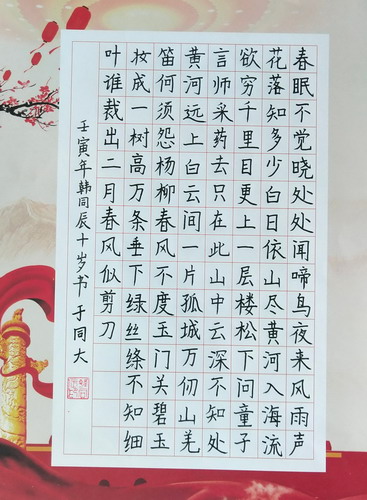 春眠不觉晓处处闻啼鸟夜来风雨声
花落知多少白日依山尽黄河入海流
欲穷千里目更上一层楼松下问童子
言师采药去只在此山中云深不知处
黄河远上白云间一片孤城万仞山羌
笛何须怨杨柳春风不度玉门关碧玉
妆成一树高万条垂下绿丝绦不知细
叶谁裁出二月春风似剪刀
壬寅年韩同辰十岁书于同大